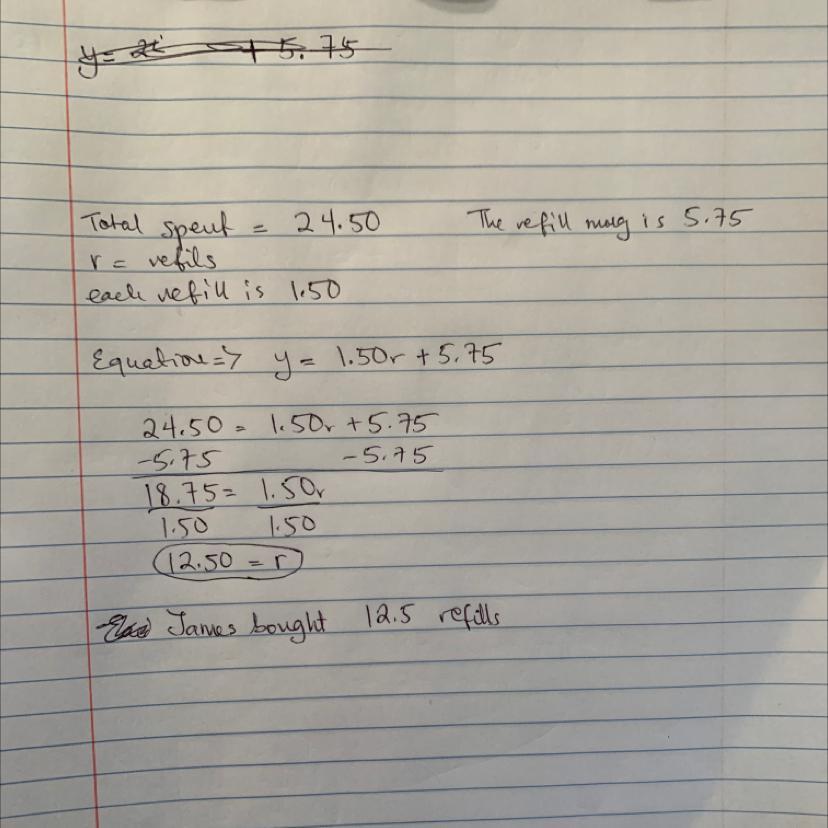 y = 2 + 5.75
Total spent = 24.50 The refill mug is 5.75
r = refils
each refill is 1.50
Equation => y = 1.50r + 5.75
24.50 = 1.50r + 5.75
-5.75 -5.75
18.75 = 1.50r
1.50 1.50
12.50 = r
James bought 12.5 refills